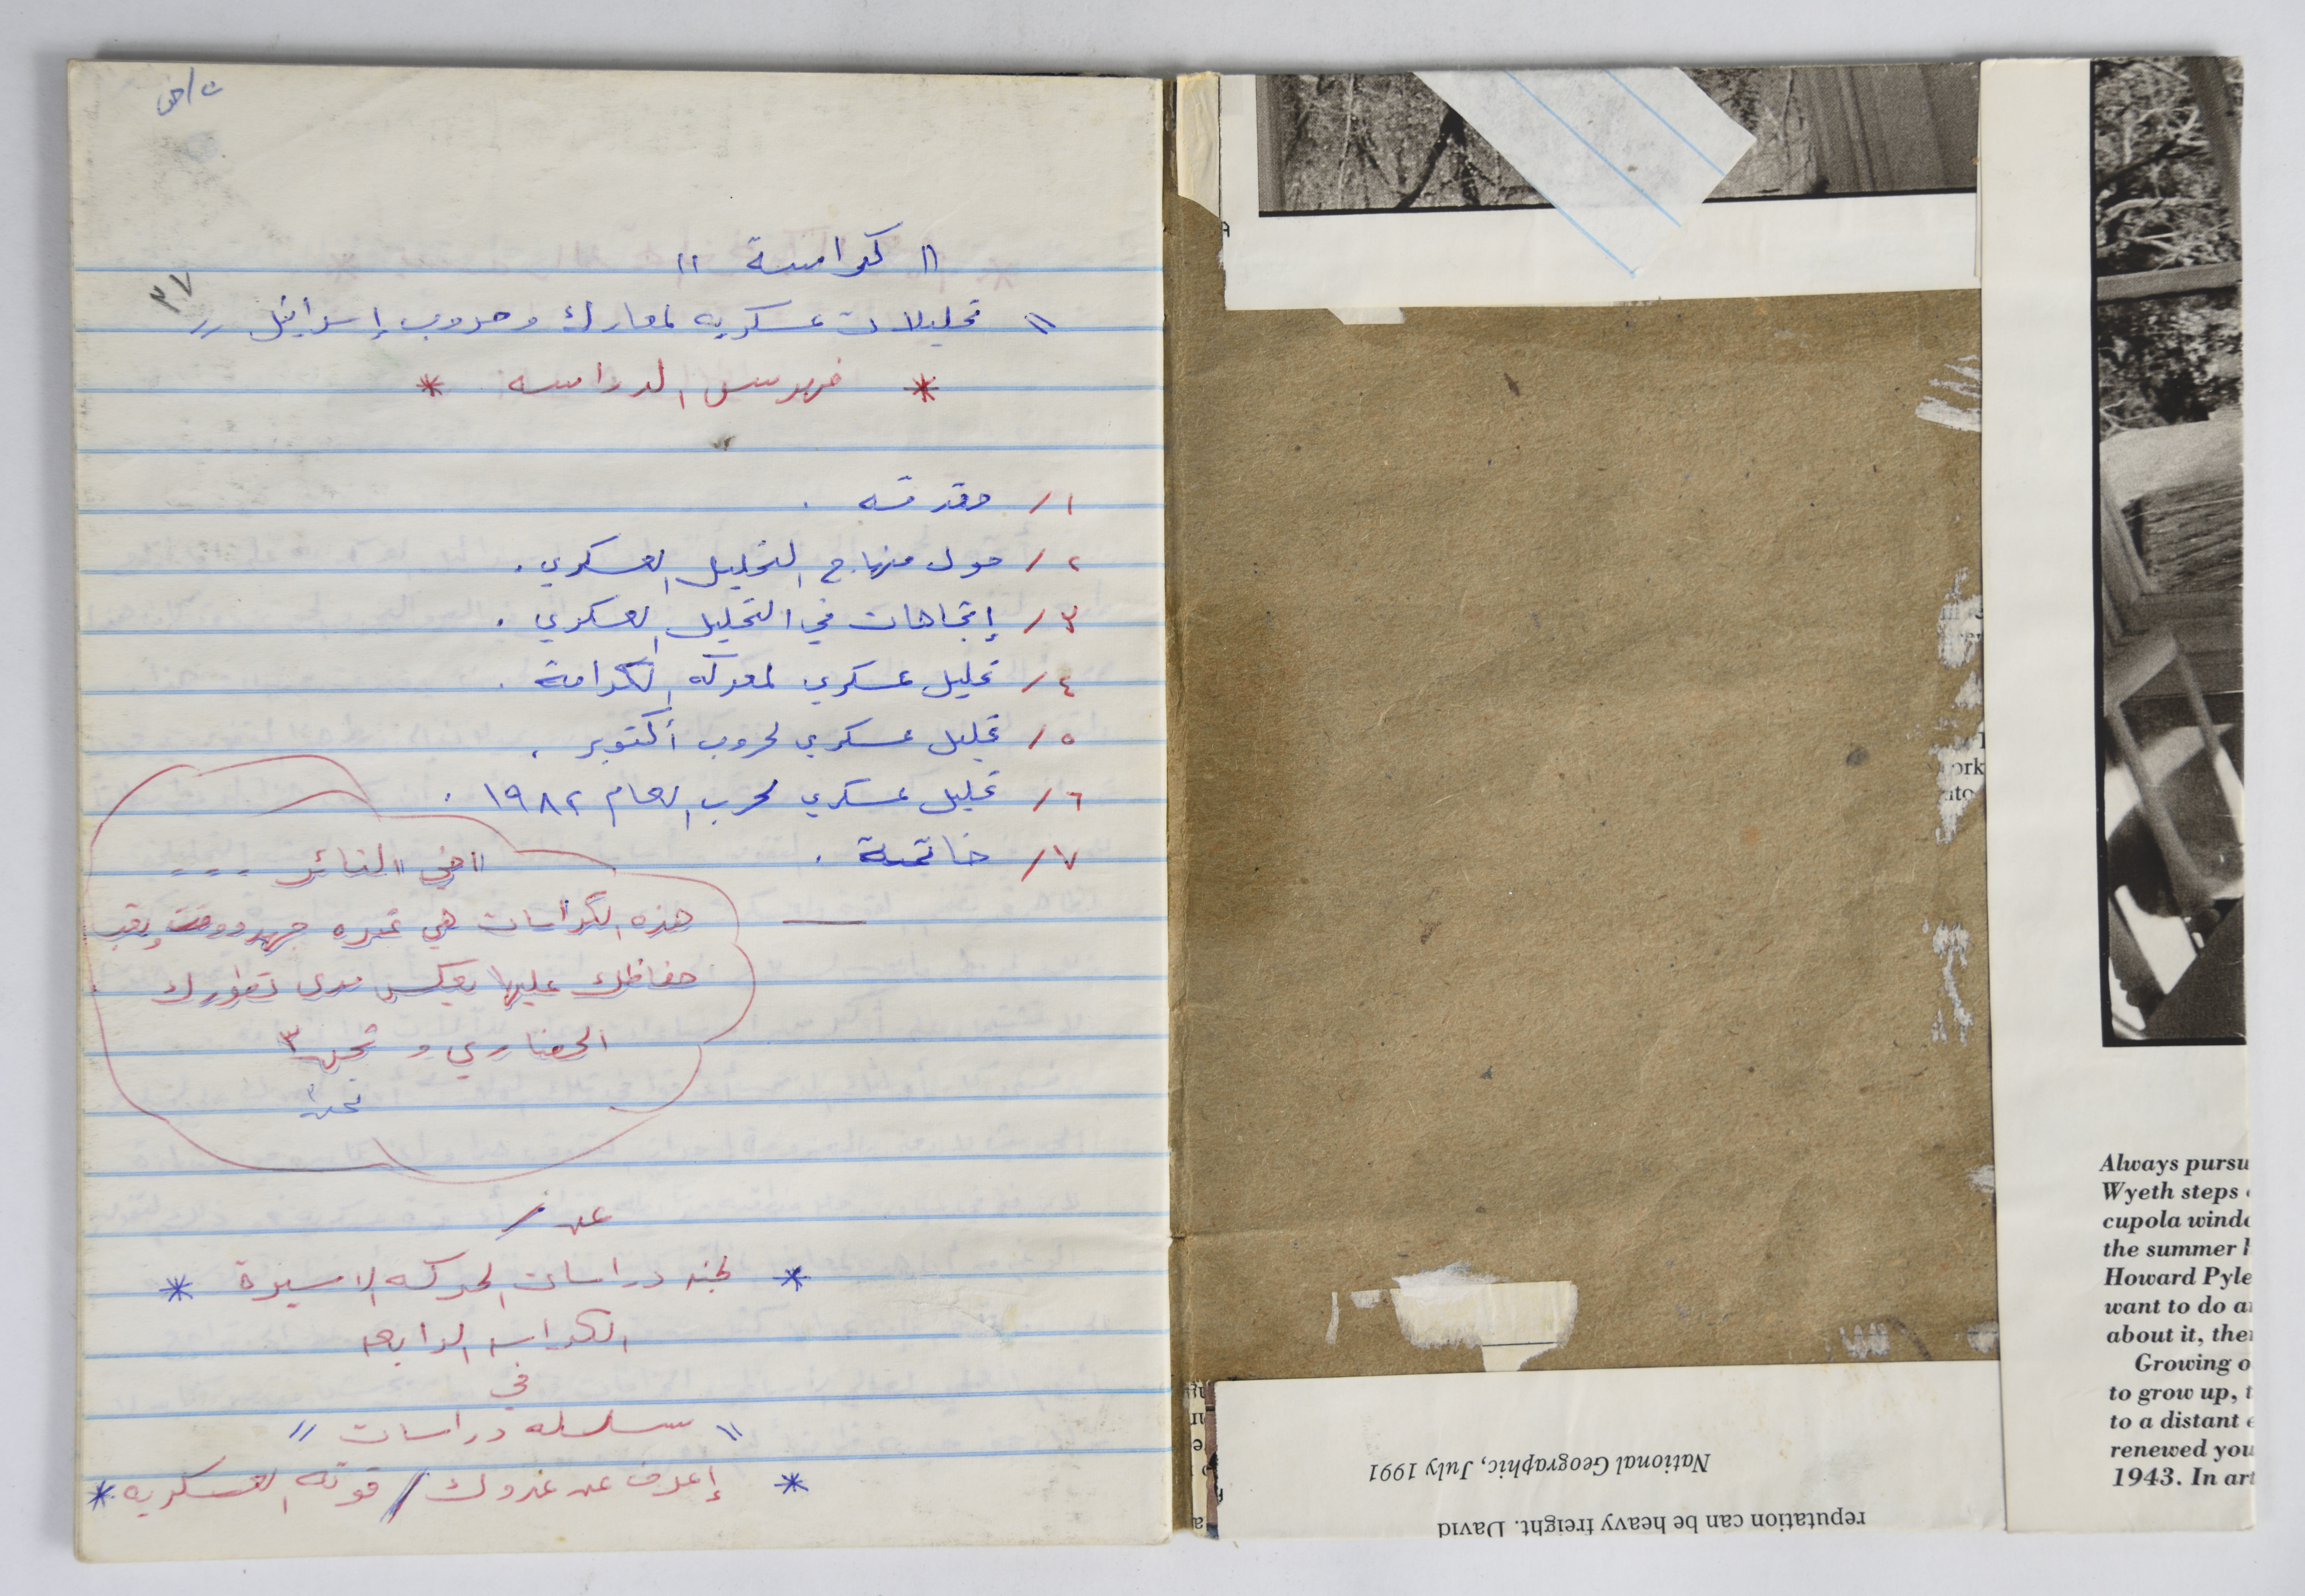 ت/ض
" كراسة "
٣٧
" تحليلات عسكريه لمعارك وحروب إسرائيل "
* فهرس الدراسه *
١/ مقدمه .
٢/ حول منهاج التحليل العسكري .
٣/ إتجاهات في التحليل العسكري .
٤/ تحليل عسكري لمعركه الكرامة .
٥/ تحليل عسكري لحروب أكتوبر .
٦/ تحليل عسكري لحرب العام ١٩٨٢ .
٧/ خاتمة .
"أخي" الثائر ...
هذه الكراسات هي ثمره جهد ووقت وتعب
حفاظك عليها يعكس مدى تطورك
الحضاري و
عن /
* لجنه دراسات الحركه الاسيرة *
الكراس الرابع
في
" سلسله دراسات "
* إعرف عدوك / قوته العسكريه *
ork
ato
Always pursu
Wyeth steps
cupola windo
the summer h
Howard Pyle
want to do a
about it, the
Growing o
to grow up, t
to a distant
renewed you
1943. In art
National Geographic, July 1991
reputation can be heavy freight. David